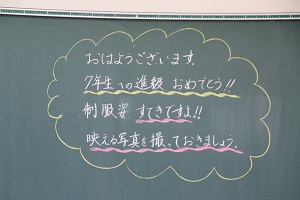 おはようございます。
7年生への進級 おめでとう!!
制服姿 すてきですよ!!
映える写真を撮っておきましょう。